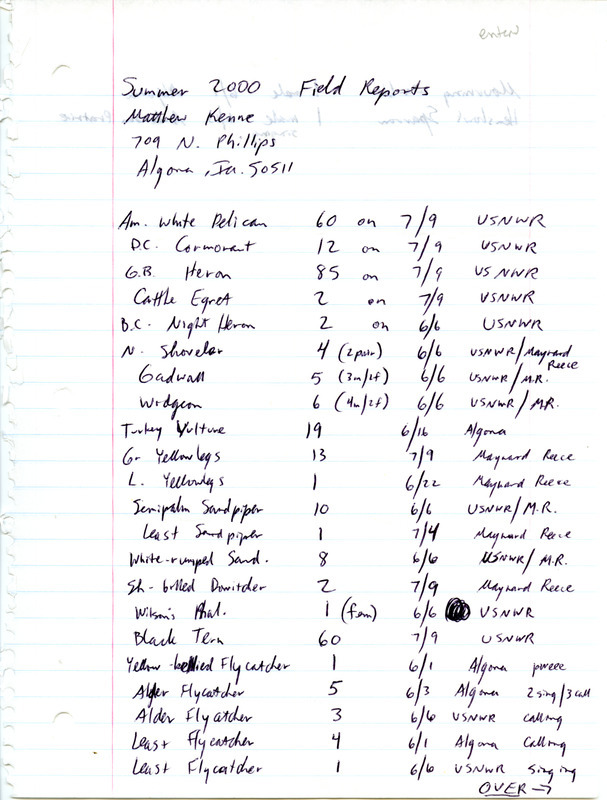 enter
Summer 2000 Field Reports
Matthew Kenne
709 N. Phillips
Algona, Ia. 50511
Am. White Pelican 60 on 7/9 USNWR
D.C. Cormorant 12 on 7/9 USNWR
G.B. Heron 85 on 7/9 USNWR
Cattle Egret 2 on 7/9 USNWR
B.C. Night Heron 2 on 6/6 USNWR
N. Shoveler 4 (2pair) 6/6 USNWR/Maynard Reece
Gadwall 5 (3m/2f) 6/6 USNWR/M.R.
Widgeon 6 (4m/2f) 6/6 USNWR/M.R.
Turkey Vulture 19 6/16 Algona
Gr Yellowlegs 13 7/9 Maynard Reece
L. Yellowlegs 1 6/22 Maynard Reece
Semipalm Sandpiper 10 6/6 USNWR/M.R.
Least Sandpiper 1 7/4 Maynard Reece
White-rumped Sand. 8 6/6 USNWR/M.R.
Sh-billed Dowitcher 2 7/9 Maynard Reece
Wilson's Phal. 1 (fem) 6/6 USNWR
Black Tern 60 7/9 USNWR
Yellow-bellied Flycatcher 1 6/1 Algona pweee
Alder Flycatcher 5 6/3 Algona 2sing/3call
Alder Flycatcher 3 6/6 USNWR calling
Least Flycatcher 4 6/1 Algona calling
Least Flycatcher 1 6/6 USNWR singing
OVER→